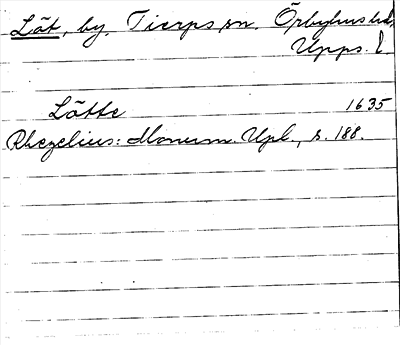 Lät, by, Tierps sn. Örbyhus hd,
Upps. l
Lötte 1635
Rhezelius: Monum. Upl., s. 188.